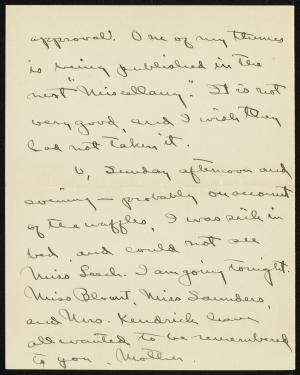 approval. One of my themes
is being published in the
next "Miscellany." It is not
very good, and I wish they
had not taken it.
O, Sunday afternoon and
evening — probably on account
of the waffles, I was sick in
bed and could not see
Miss Leach. I am going tonight.
Miss Blount, Miss Saunders,
and Mrs. Kendrick have
all wanted to be remembered
to you, Mother.